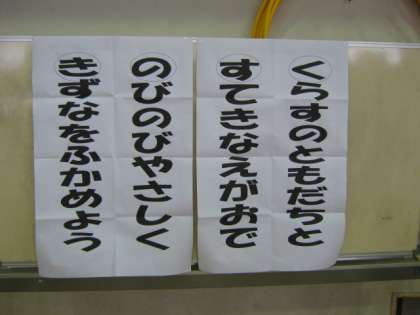 くらすのともだちと
すてきなえがおで
のびのびやさしく
きずなをふかめよう